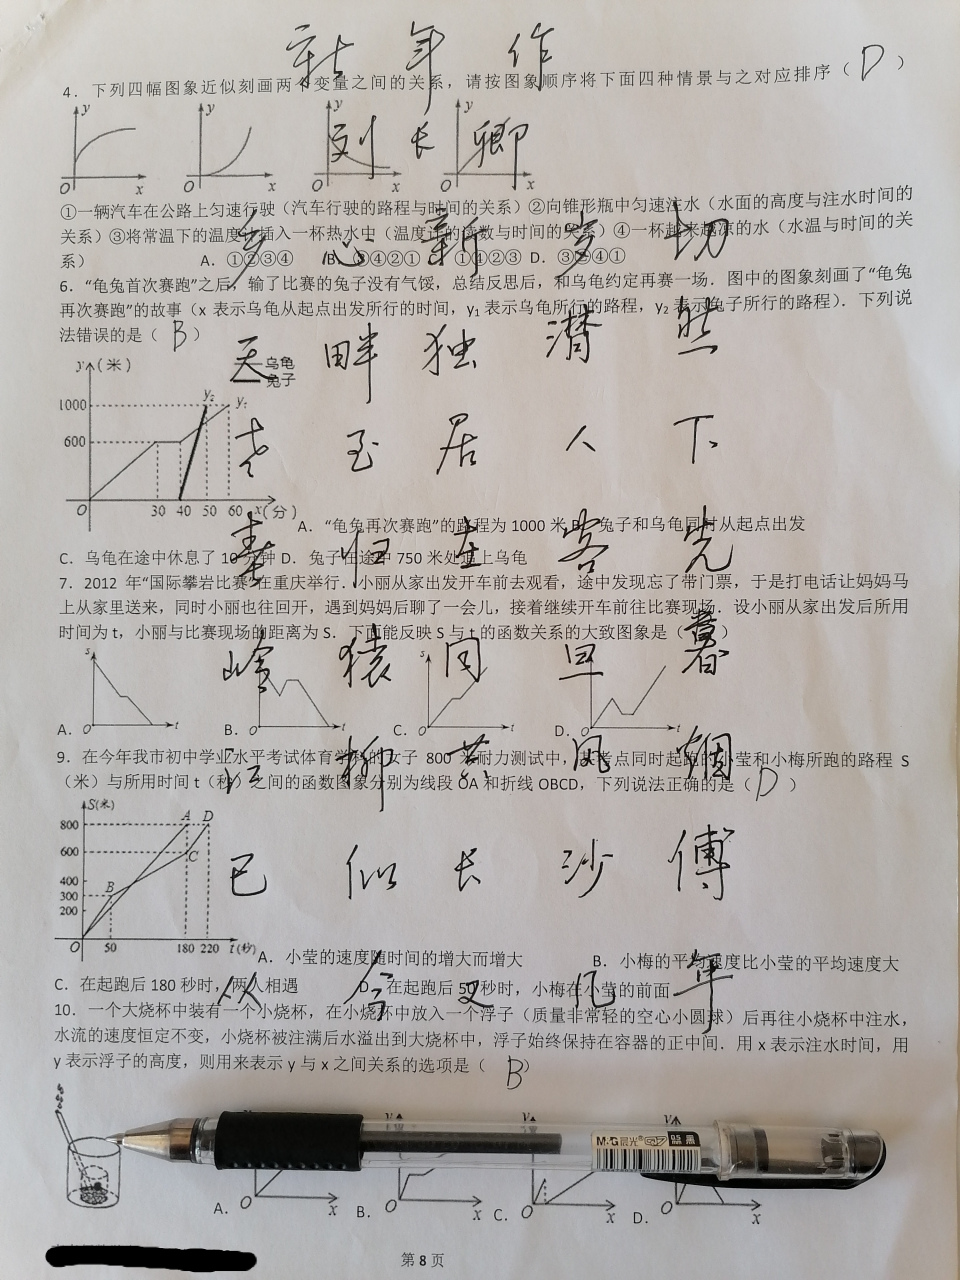 新年作
4．下列四幅图象近似刻画两个变量之间的关系，请按图象顺序将下面四种情景与之对应排序（ D ）
y y y y
刘长卿
O x O x O x O x
①一辆汽车在公路上匀速行驶（汽车行驶的路程与时间的关系）②向锥形瓶中匀速注水（水面的高度与注水时间的
关系）③将常温下的温度计插入一杯热水中（温度计的读数与时间的关系）④一杯越来越凉的水（水温与时间的关
乡心新岁切
系） A．①②③④ B．③④②① C．①④②③ D．③②④①
6．“龟兔首次赛跑”之后，输了比赛的兔子没有气馁，总结反思后，和乌龟约定再赛一场．图中的图象刻画了“龟兔
再次赛跑”的故事（x 表示乌龟从起点出发所行的时间，y₁ 表示乌龟所行的路程，y₂ 表示兔子所行的路程）．下列说
法错误的是（ B ）
天畔独潸然
y（米） 乌龟
兔子
1000 y₂ y₁
600
老至居人下
O 30 40 50 60 x（分）
A．“龟兔再次赛跑”的路程为 1000 米 B．兔子和乌龟同时从起点出发
春归在客先
C．乌龟在途中休息了 10 分钟 D．兔子在途中 750 米处追上乌龟
7．2012 年“国际攀岩比赛”在重庆举行．小丽从家出发开车前去观看，途中发现忘了带门票，于是打电话让妈妈马
上从家里送来，同时小丽也往回开，遇到妈妈后聊了一会儿，接着继续开车前往比赛现场．设小丽从家出发后所用
时间为 t，小丽与比赛现场的距离为 S．下面能反映 S 与 t 的函数关系的大致图象是（ ）
岭猿同旦暮
s s
A． O t B． O t C． O t D． O t
9．在今年我市初中学业水平考试体育学科的女子 800 米耐力测试中，某考点同时起跑的小莹和小梅所跑的路程 S
江柳共风烟
（米）与所用时间 t（秒）之间的函数图象分别为线段 OA 和折线 OBCD，下列说法正确的是（ D ）
S(米)
800 A D
600 C
已似长沙傅
400
300 B
200
O 50 180 220 t(秒)
A．小莹的速度随时间的增大而增大 B．小梅的平均速度比小莹的平均速度大
C．在起跑后 180 秒时，两人相遇 D．在起跑后 50 秒时，小梅在小莹的前面
从今又几年
10．一个大烧杯中装有一个小烧杯，在小烧杯中放入一个浮子（质量非常轻的空心小圆球）后再往小烧杯中注水，
水流的速度恒定不变，小烧杯被注满后水溢出到大烧杯中，浮子始终保持在容器的正中间．用 x 表示注水时间，用
y 表示浮子的高度，则用来表示 y 与 x 之间关系的选项是（ B ）
M&G 晨光 0.5 黑
A． O x B． O x C． O x D． O x
第 8 页